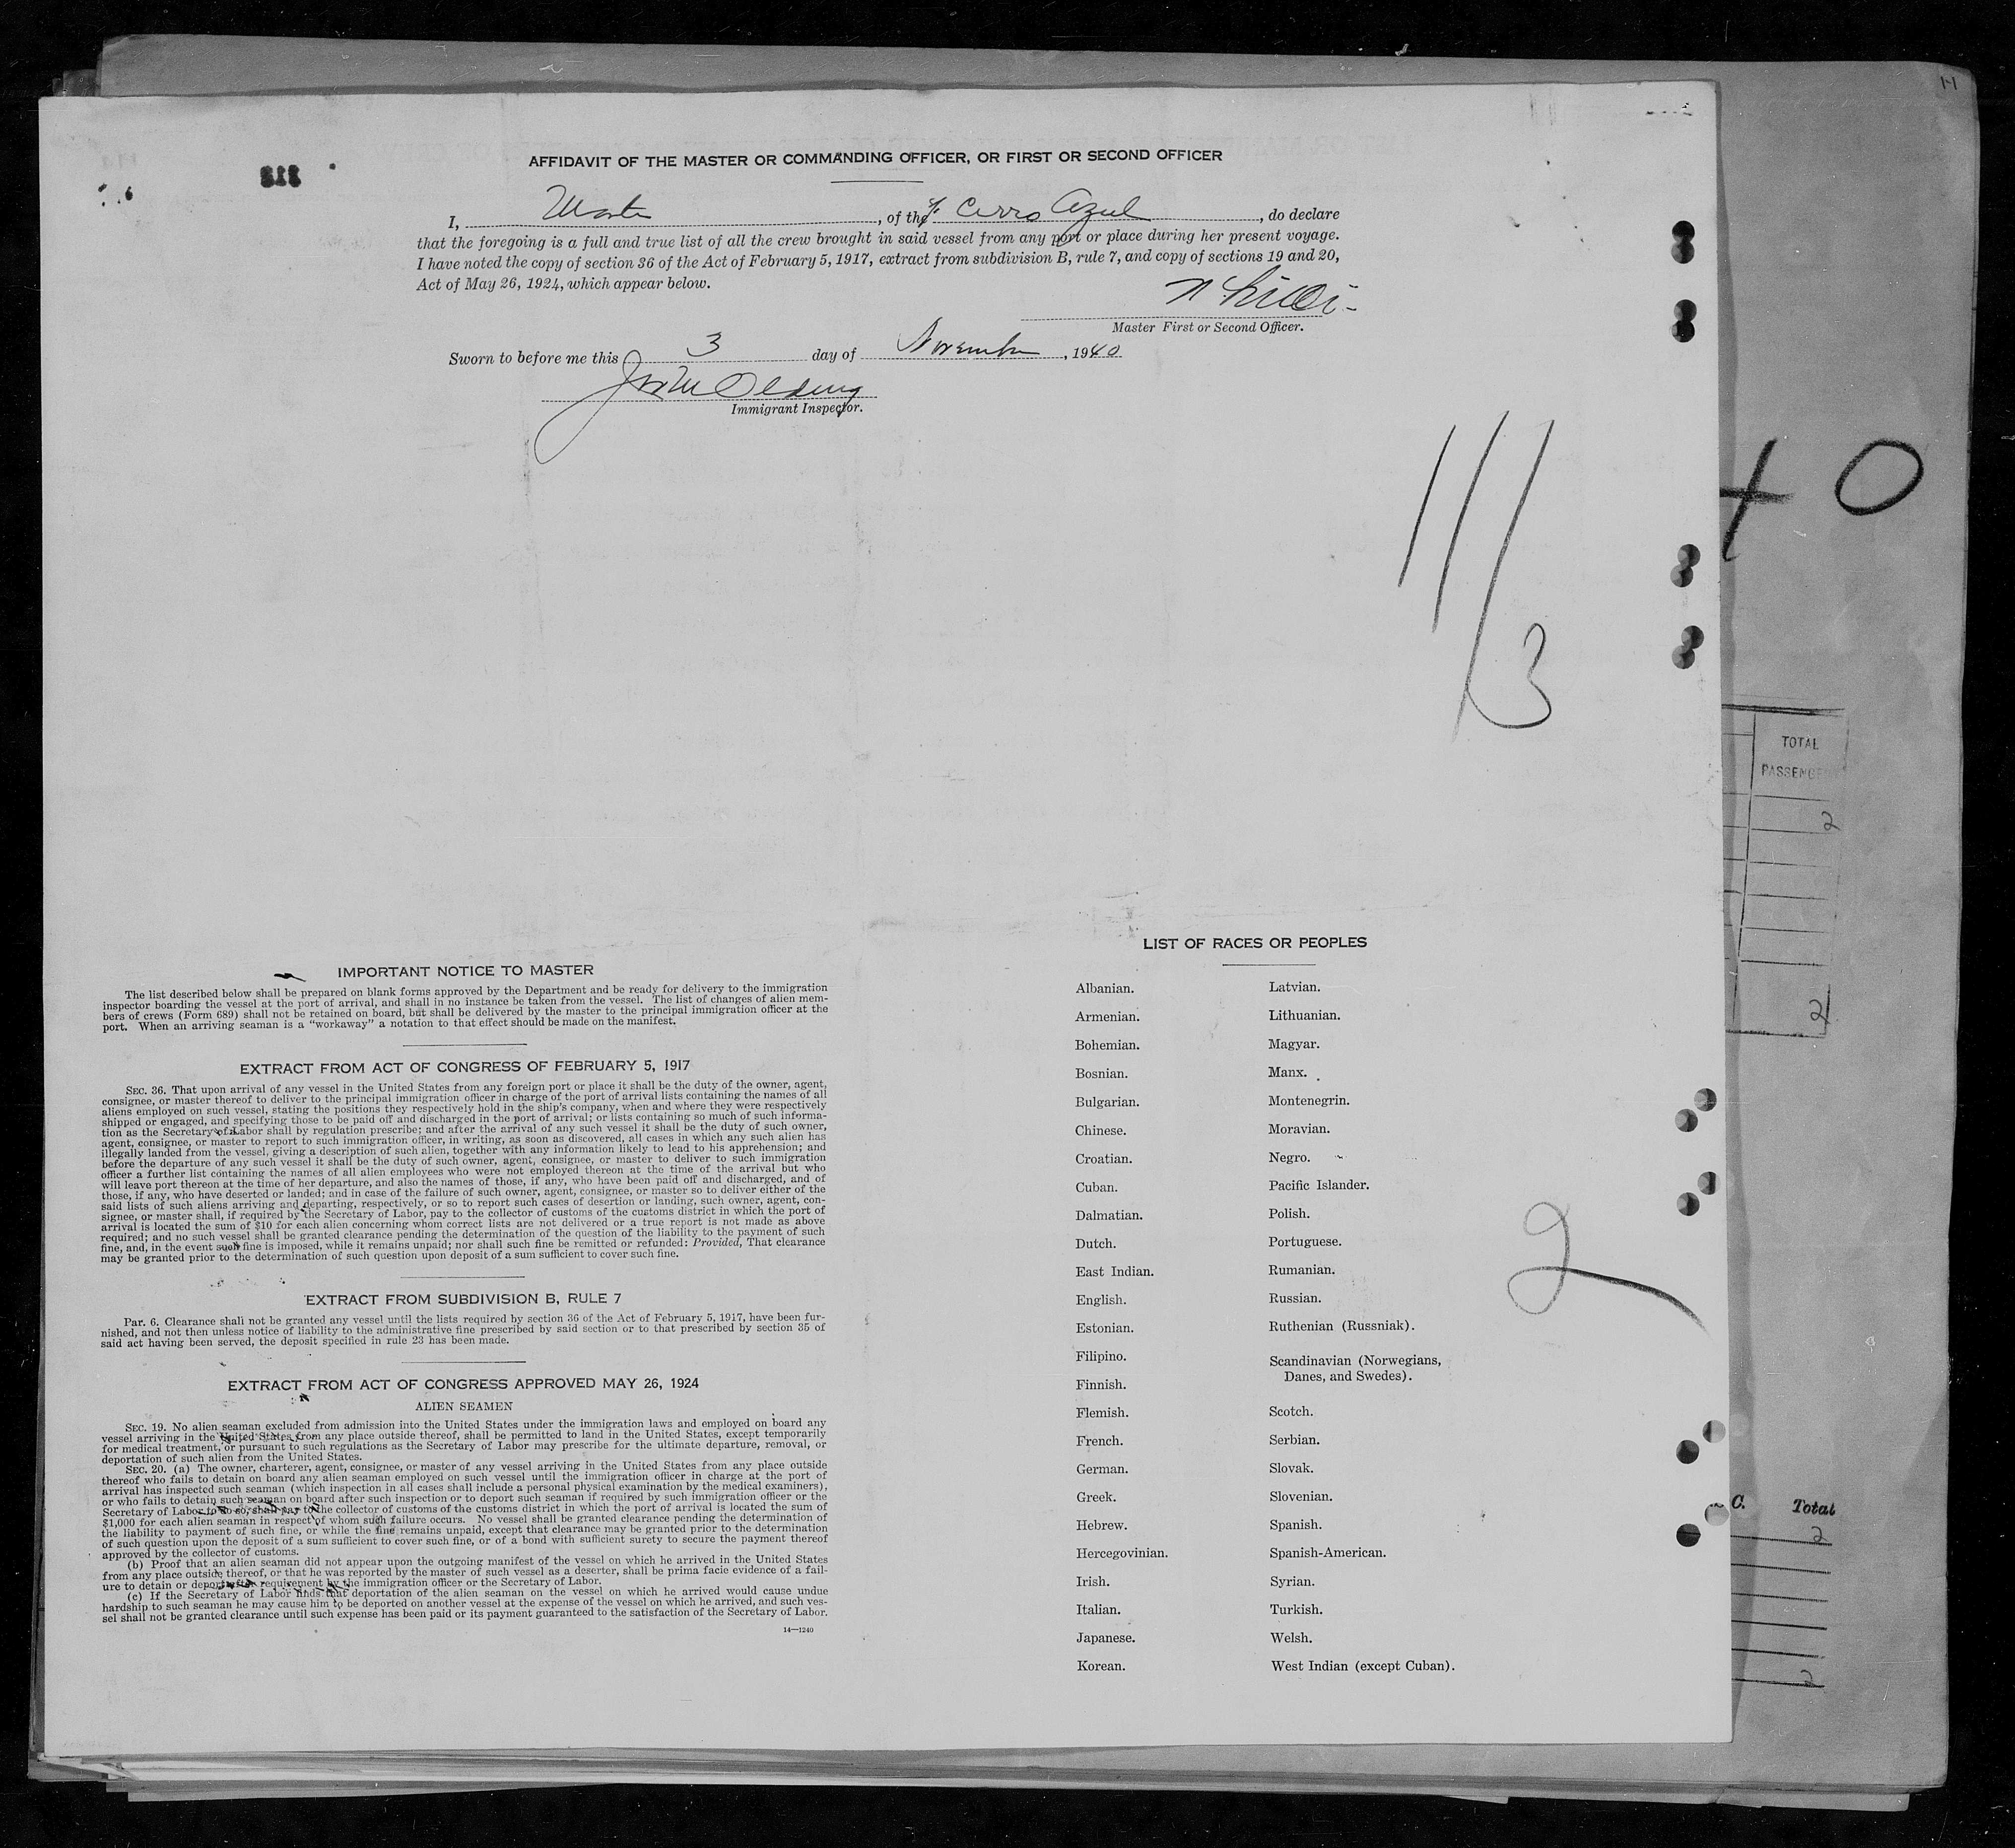 AFFIDAVIT OF THE MASTER OR COMMANDING OFFICER, OR FIRST OR SECOND OFFICER
I, Master, of the Cerro Azul, do declare
that the foregoing is a full and true list of all the crew brought in said vessel from any port or place during her present voyage.
I have noted the copy of section 36 of the Act of February 5, 1917, extract from subdivision B, rule 7, and copy of sections 19 and 20,
Act of May 26, 1924, which appear below.
Master First or Second Officer.
Sworn to before me this 3 day of November, 1940
Immigrant Inspector.
11/3
40
TOTAL
PASSENGE
2
2
IMPORTANT NOTICE TO MASTER
The list described below shall be prepared on blank forms approved by the Department and be ready for delivery to the immigration
inspector boarding the vessel at the port of arrival, and shall in no instance be taken from the vessel. The list of changes of alien mem-
bers of crews (Form 689) shall not be retained on board, but shall be delivered by the master to the principal immigration officer at the
port. When an arriving seaman is a "workaway" a notation to that effect should be made on the manifest.
EXTRACT FROM ACT OF CONGRESS OF FEBRUARY 5, 1917
SEC. 36. That upon arrival of any vessel in the United States from any foreign port or place it shall be the duty of the owner, agent,
consignee, or master thereof to deliver to the principal immigration officer in charge of the port of arrival lists containing the names of all
aliens employed on such vessel, stating the positions they respectively hold in the ship's company, when and where they were respectively
shipped or engaged, and specifying those to be paid off and discharged in the port of arrival; or lists containing so much of such informa-
tion as the Secretary of Labor shall by regulation prescribe; and after the arrival of any such vessel it shall be the duty of such owner,
agent, consignee, or master to report to such immigration officer, in writing, as soon as discovered, all cases in which any such alien has
illegally landed from the vessel, giving a description of such alien, together with any information likely to lead to his apprehension; and
before the departure of any such vessel it shall be the duty of such owner, agent, consignee, or master to deliver to such immigration
officer a further list containing the names of all alien employees who were not employed thereon at the time of the arrival but who
will leave port thereon at the time of her departure, and also the names of those, if any, who have been paid off and discharged, and of
those, if any, who have deserted or landed; and in case of the failure of such owner, agent, consignee, or master so to deliver either of the
said lists of such aliens arriving and departing, respectively, or so to report such cases of desertion or landing, such owner, agent, con-
signee, or master shall, if required by the Secretary of Labor, pay to the collector of customs of the customs district in which the port of
arrival is located the sum of $10 for each alien concerning whom correct lists are not delivered or a true report is not made as above
required; and no such vessel shall be granted clearance pending the determination of the question of the liability to the payment of such
fine, and, in the event such fine is imposed, while it remains unpaid; nor shall such fine be remitted or refunded: Provided, That clearance
may be granted prior to the determination of such question upon deposit of a sum sufficient to cover such fine.
EXTRACT FROM SUBDIVISION B, RULE 7
Par. 6. Clearance shall not be granted any vessel until the lists required by section 36 of the Act of February 5, 1917, have been fur-
nished, and not then unless notice of liability to the administrative fine prescribed by said section or to that prescribed by section 35 of
said act having been served, the deposit specified in rule 23 has been made.
EXTRACT FROM ACT OF CONGRESS APPROVED MAY 26, 1924
ALIEN SEAMEN
SEC. 19. No alien seaman excluded from admission into the United States under the immigration laws and employed on board any
vessel arriving in the United States from any place outside thereof, shall be permitted to land in the United States, except temporarily
for medical treatment, or pursuant to such regulations as the Secretary of Labor may prescribe for the ultimate departure, removal, or
deportation of such alien from the United States.
SEC. 20. (a) The owner, charterer, agent, consignee, or master of any vessel arriving in the United States from any place outside
thereof who fails to detain on board any alien seaman employed on such vessel until the immigration officer in charge at the port of
arrival has inspected such seaman (which inspection in all cases shall include a personal physical examination by the medical examiners),
or who fails to detain such seaman on board after such inspection or to deport such seaman if required by such immigration officer or the
Secretary of Labor to do so, shall pay to the collector of customs of the customs district in which the port of arrival is located the sum of
$1,000 for each alien seaman in respect of whom such failure occurs. No vessel shall be granted clearance pending the determination of
the liability to payment of such fine, or while the fine remains unpaid, except that clearance may be granted prior to the determination
of such question upon the deposit of a sum sufficient to cover such fine, or of a bond with sufficient surety to secure the payment thereof
approved by the collector of customs.
(b) Proof that an alien seaman did not appear upon the outgoing manifest of the vessel on which he arrived in the United States
from any place outside thereof, or that he was reported by the master of such vessel as a deserter, shall be prima facie evidence of a fail-
ure to detain or deport after requirement by the immigration officer or the Secretary of Labor.
(c) If the Secretary of Labor finds that deportation of the alien seaman on the vessel on which he arrived would cause undue
hardship to such seaman he may cause him to be deported on another vessel at the expense of the vessel on which he arrived, and such ves-
sel shall not be granted clearance until such expense has been paid or its payment guaranteed to the satisfaction of the Secretary of Labor.
14—1240
LIST OF RACES OR PEOPLES
Albanian. Latvian.
Armenian. Lithuanian.
Bohemian. Magyar.
Bosnian. Manx.
Bulgarian. Montenegrin.
Chinese. Moravian.
Croatian. Negro.
Cuban. Pacific Islander.
Dalmatian. Polish.
Dutch. Portuguese.
East Indian. Rumanian.
English. Russian.
Estonian. Ruthenian (Russniak).
Filipino. Scandinavian (Norwegians,
Danes, and Swedes).
Finnish.
Flemish. Scotch.
French. Serbian.
German. Slovak.
Greek. Slovenian.
Hebrew. Spanish.
Hercegovinian. Spanish-American.
Irish. Syrian.
Italian. Turkish.
Japanese. Welsh.
Korean. West Indian (except Cuban).
2
C. Total
2
2